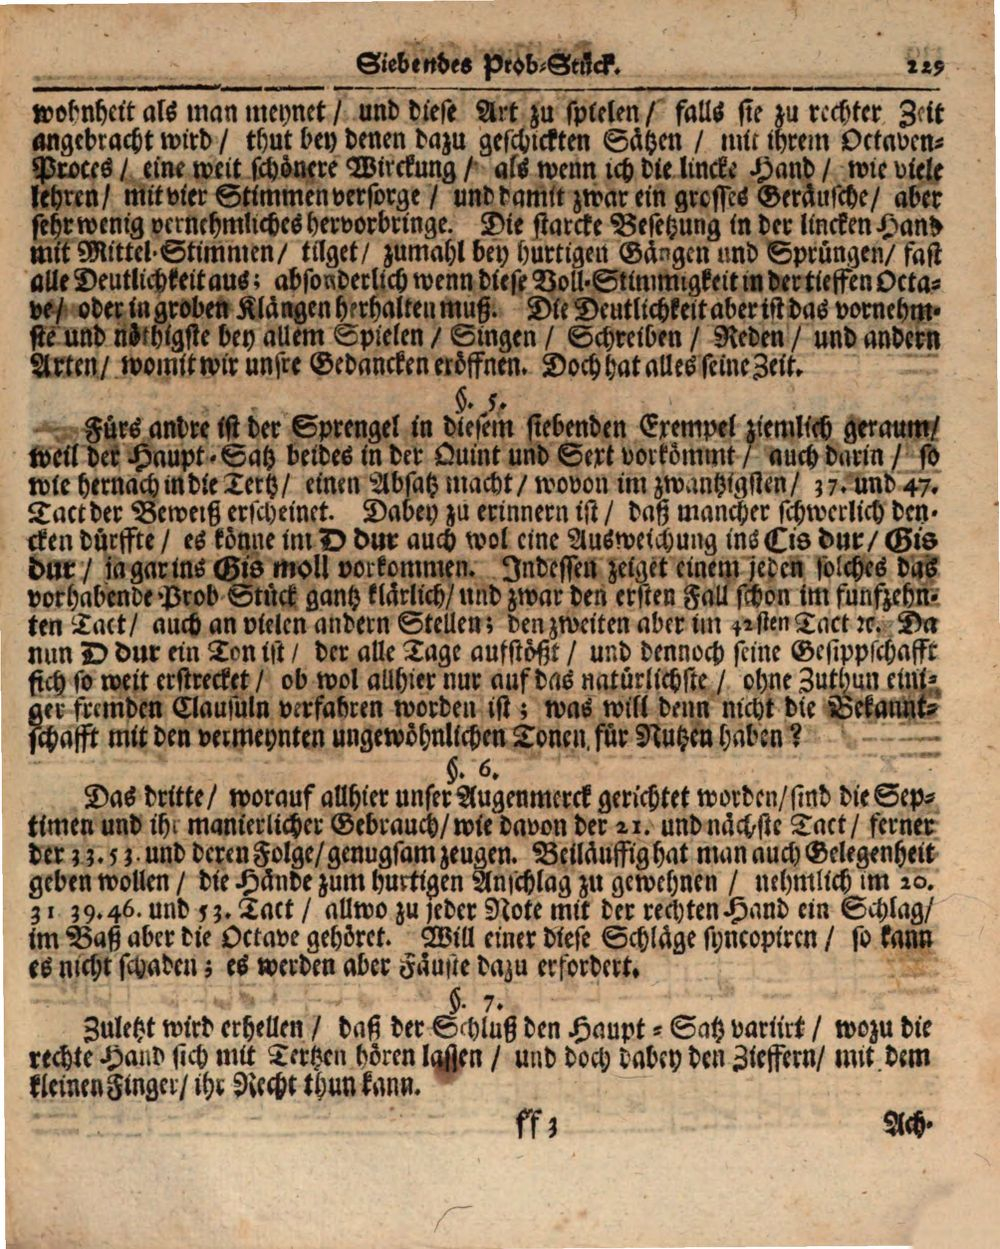 Siebendes Prob-Stück. 229
wohnheit als man meynet / und diese Art zu spielen / falls sie zu rechter Zeit
angebracht wird / thut bey denen dazu geschickten Sätzen / mit ihrem Octaven-
Proces / eine weit schönere Wirckung / als wenn ich die lincke Hand / wie viele
lehren / mit vier Stimmen versorge / und damit zwar ein grosses Geräusche / aber
sehr wenig vernehmliches hervorbringe. Die starcke Besetzung in der lincken Hand
mit Mittel-Stimmen / tilget / zumahl bey hurtigen Gängen und Sprüngen / fast
alle Deutlichkeit aus; absonderlich wenn diese Voll-Stimmigkeit in der tieffen Octa-
ve / oder in groben Klängen herhalten muß. Die Deutlichkeit aber ist das vornehm-
ste und nöthigste bey allem Spielen / Singen / Schreiben / Reden / und andern
Arten / womit wir unsre Gedancken eröffnen. Doch hat alles seine Zeit.
§. 5.
Fürs andre ist der Sprengel in diesem siebenden Exempel ziemlich geraum /
weil der Haupt-Satz beides in der Quint und Sext vorkömmt / auch darin / so
wie hernach in die Tertz / einen Absatz macht / wovon im zwantzigsten / 37. und 47.
Tact der Beweiß erscheinet. Dabey zu erinnern ist / daß mancher schwerlich den-
cken dürffte / es könne im D dur auch wol eine Ausweichung ins Cis dur / Gis
dur / ja gar ins Gis moll vorkommen. Indessen zeiget einem jeden solches das
vorhabende Prob-Stück gantz klärlich / und zwar den ersten Fall schon im funfzehn-
ten Tact / auch an vielen andern Stellen; den zweiten aber im 42sten Tact ꝛc. Da
nun D dur ein Ton ist / der alle Tage aufstößt / und dennoch seine Gesippschafft
sich so weit erstrecket / ob wol allhier nur auf das natürlichste / ohne Zuthun eini-
ger fremden Clausuln verfahren worden ist; was will denn nicht die Bekannt-
schafft mit den vermeynten ungewöhnlichen Tonen für Nutzen haben?
§. 6.
Das dritte / worauf allhier unser Augenmerck gerichtet worden / sind die Sep-
timen und ihr manierlicher Gebrauch / wie davon der 21. und nächste Tact / ferner
der 33. 53. und deren Folge / genugsam zeugen. Beiläuffig hat man auch Gelegenheit
geben wollen / die Hände zum hurtigen Anschlag zu gewehnen / nehmlich im 20.
31 39. 46. und 53. Tact / allwo zu jeder Note mit der rechten Hand ein Schlag /
im Baß aber die Octave gehöret. Will einer diese Schläge syncopiren / so kann
es nicht schaden; es werden aber Fäuste dazu erfordert.
§. 7.
Zuletzt wird erhellen / daß der Schluß den Haupt-Satz variirt / wozu die
rechte Hand sich mit Tertzen hören lassen / und doch dabey den Zieffern / mit dem
kleinen Finger / ihr Recht thun kann.
ff 3 Ach-